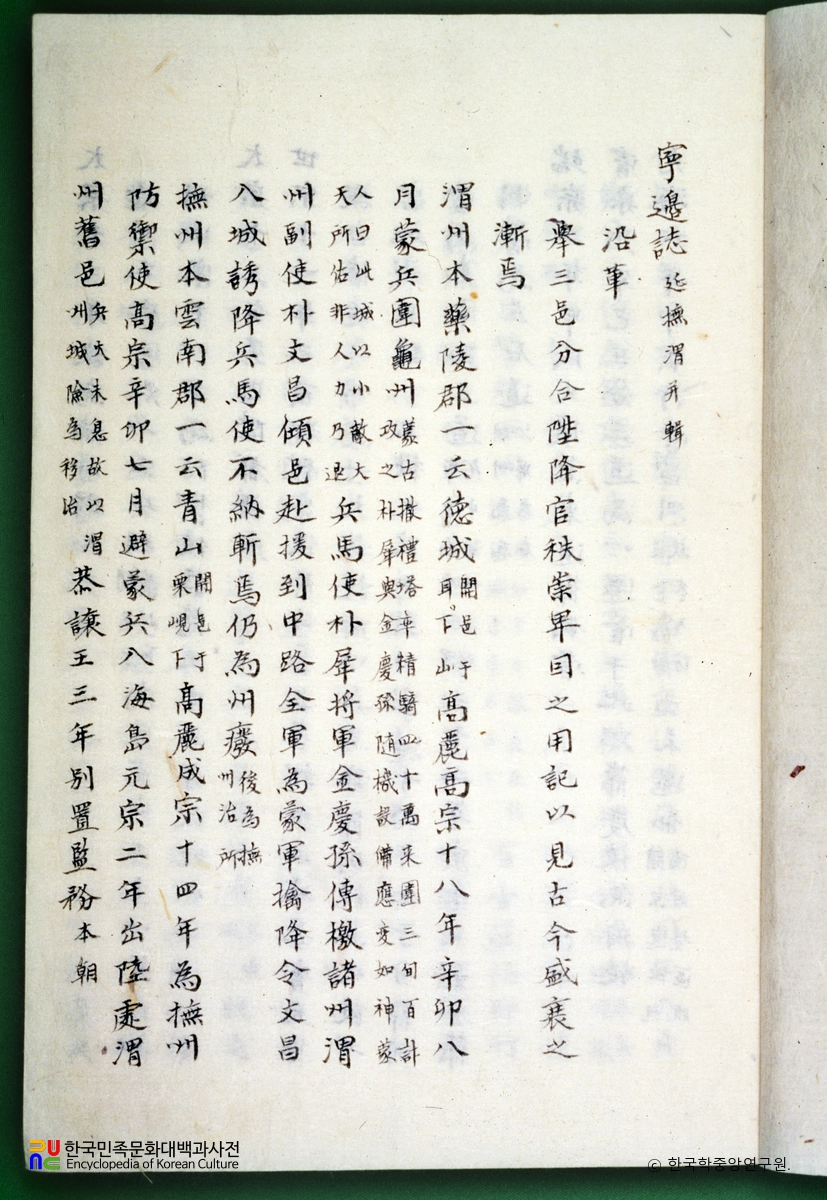 寧邊誌 延撫渭并輯
沿革
舉三邑分合陞降官秩崇卑目之用記以見古今盛衰之
漸焉
渭州本藥陵郡一云德城開邑于耳下山高麗高宗十八年辛卯八
月蒙兵圍龜州蒙古撒禮塔率精騎四十萬來圍三旬百計攻之朴犀與金慶孫隨機設備應变如神蒙
人曰此城以小敵大天所佑非人力乃退兵馬使朴犀將軍金慶孫傳檄諸州渭
州副使朴文昌傾邑赴援到中路全軍為蒙軍擒降令文昌
入城誘降兵馬使不納斬焉仍為州廢後為撫州治所
撫州本雲南郡一云青山開邑于栗峴下高麗成宗十四年為撫州
防禦使高宗辛卯七月避蒙兵入海島元宗二年出陸處渭
州舊邑兵火未息故以渭州城險為移治恭讓王三年別置監務本朝
한국민족문화대백과사전
Encyclopedia of Korean Culture
© 한국학중앙연구원.